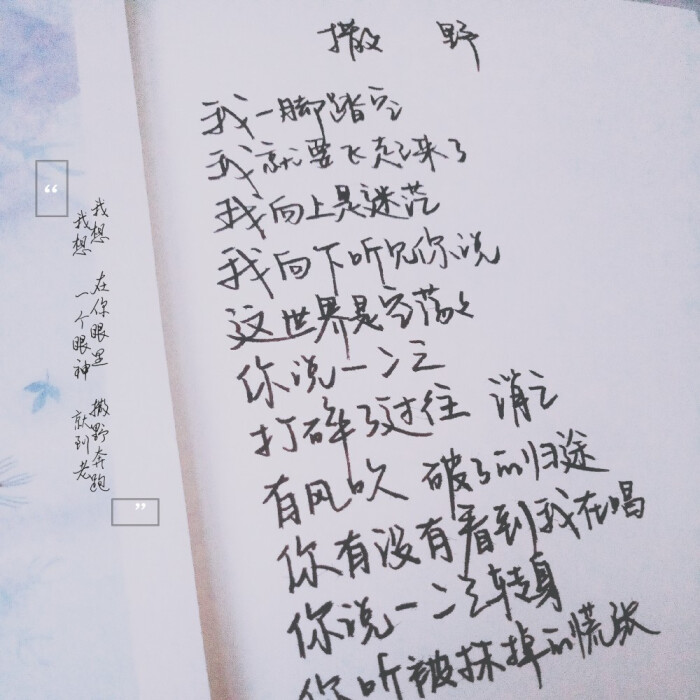 撒 野
我一脚踏空
我就要飞起来了
我向上是迷茫
我向下听见你说
这世界是空荡々
你说一二三
打碎了过往 消亡
有风吹 破了的归途
你有没有看到我在唱
你说一二三转身
你听被抹掉的慌张
“
我想 在你眼里 撒野奔跑
我想 一个眼神 就到老
”